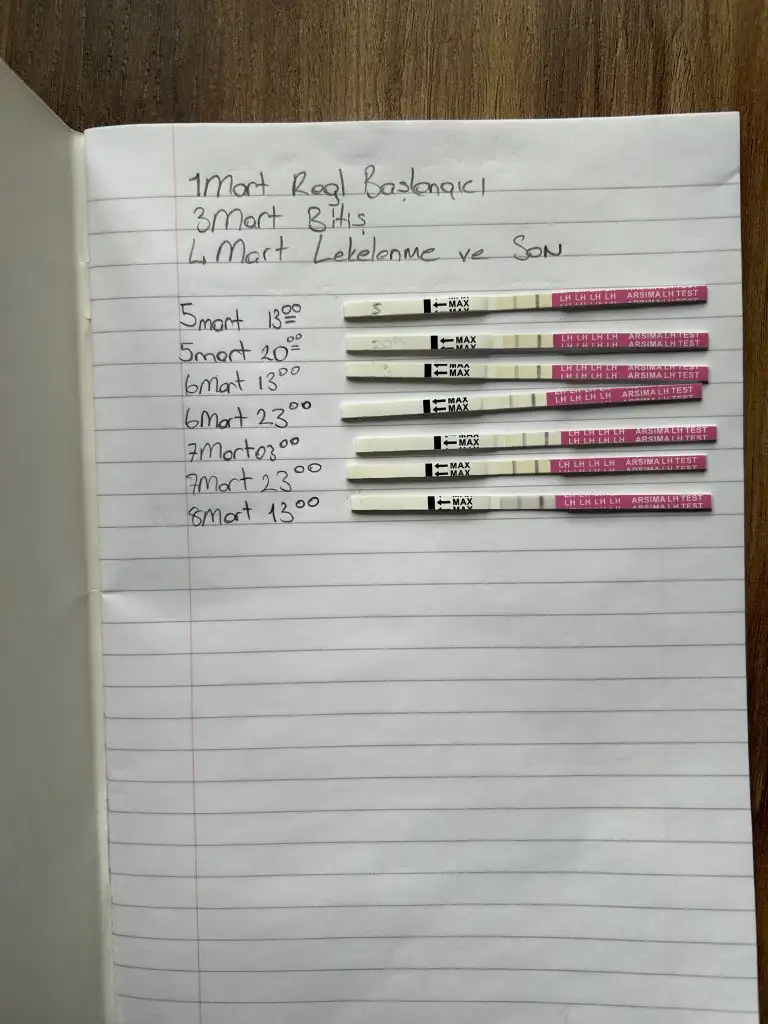 1Mart Regl Başlangıcı
3Mart Bitiş
4 Mart Lekelenme ve SON
5mart 13⁰⁰ 5 ←MAX LH LH LH LH ARSIMA LH TEST
5mart 20⁰⁰ ←MAX MAX LH LH LH LH ARSIMA LH TEST
6Mart 13⁰⁰ ←MAX MAX LH LH LH LH ARSIMA LH TEST
6Mart 23⁰⁰ ←MAX MAX LH LH LH LH ARSIMA LH TEST
7Mart 03⁰⁰ MAX ←MAX LH LH LH LH ARSIMA LH TEST
7Mart 23⁰⁰ ←MAX MAX LH LH LH LH ARSIMA LH TEST
8Mart 13⁰⁰ ←MAX MAX LH LH LH LH ARSIMA LH TEST